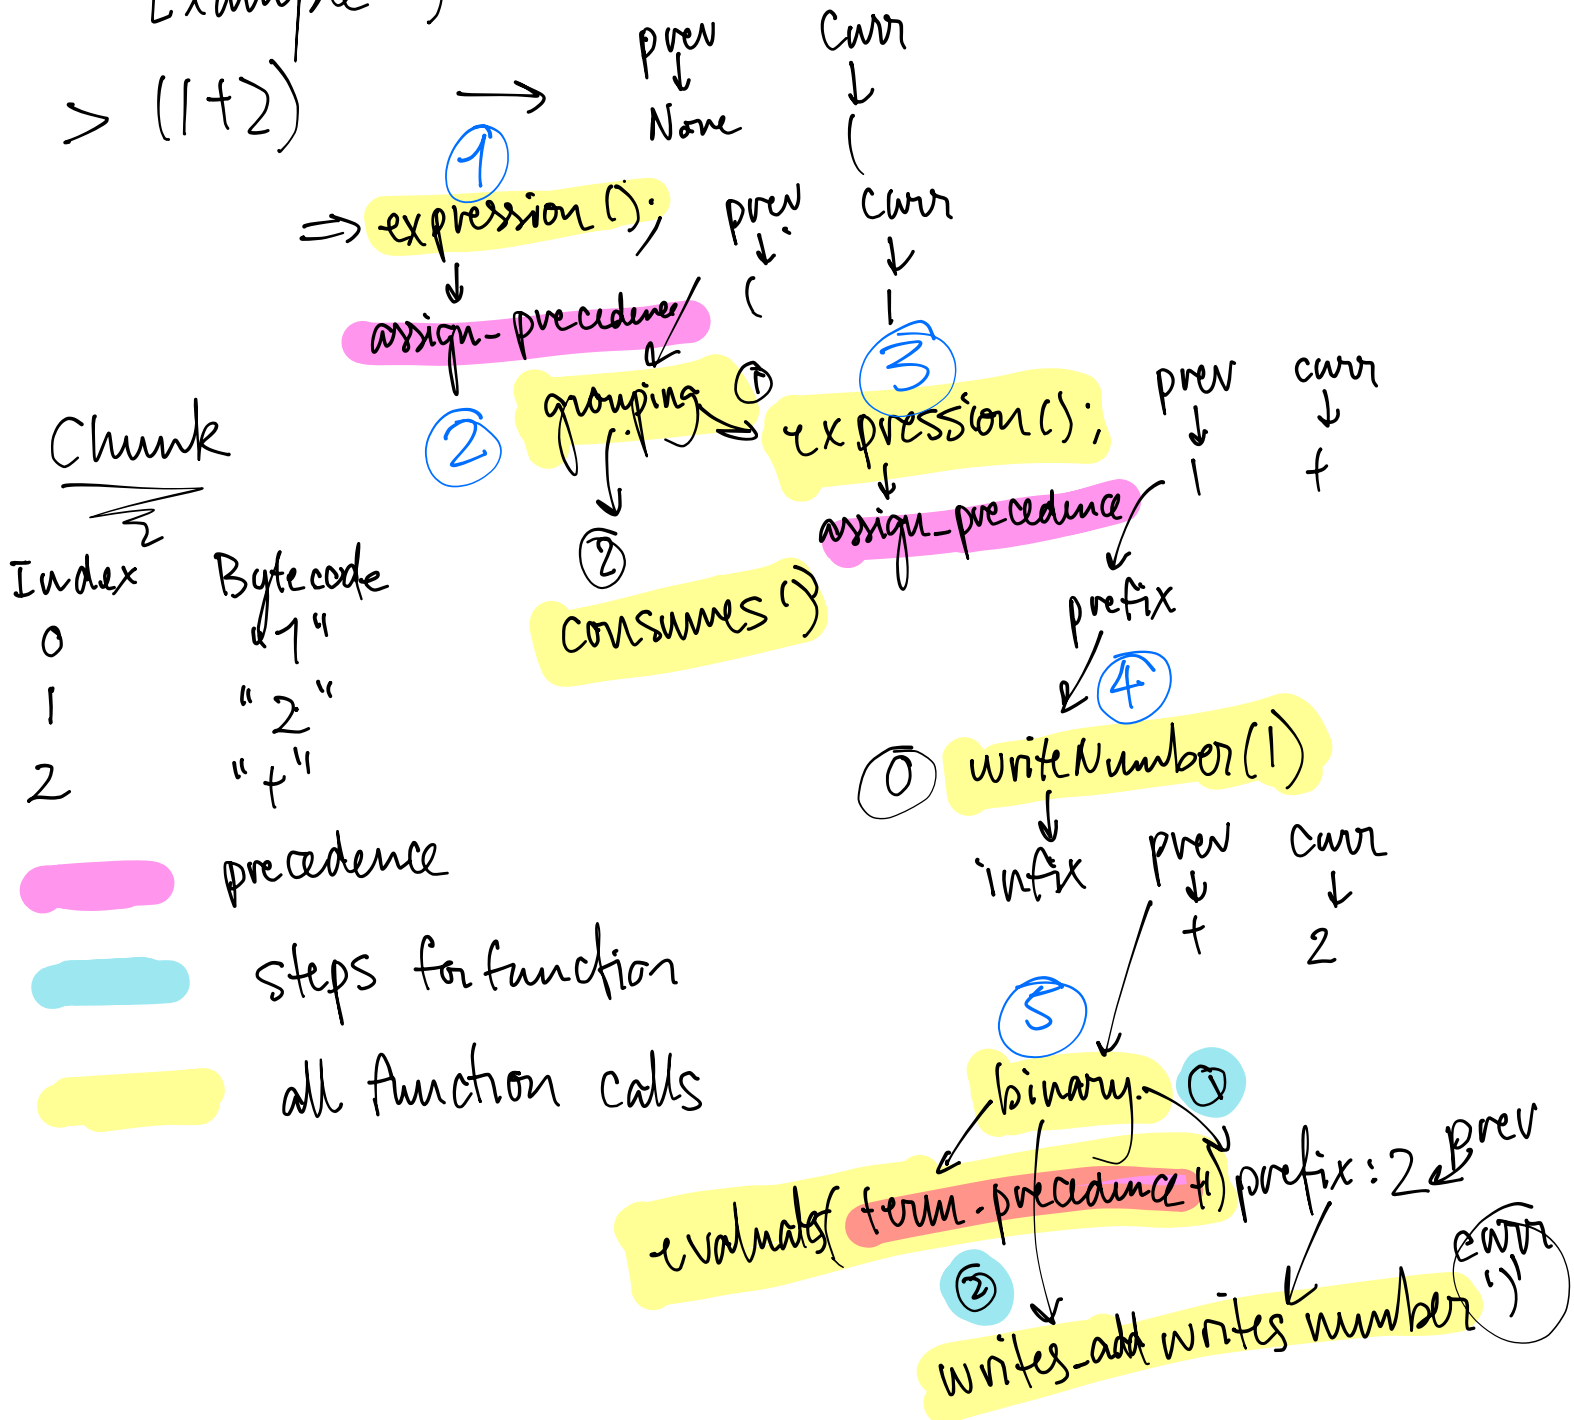 Example
> (1+2) →
prev curr
None (
1
⇒ expression();
prev curr
( 1
assign_precedence
2 grouping 1
3
expression();
prev curr
1 +
assign_precedence
2
consumes()
prefix
4
0 writeNumber(1)
infix
prev curr
+ 2
5
binary 1
evaluates(term.precedence+1) prefix: 2 prev
2
curr
')'
writes_add writes number
Chunk
Index Bytecode
0 "1"
1 "2"
2 "+"
precedence
steps for function
all function calls